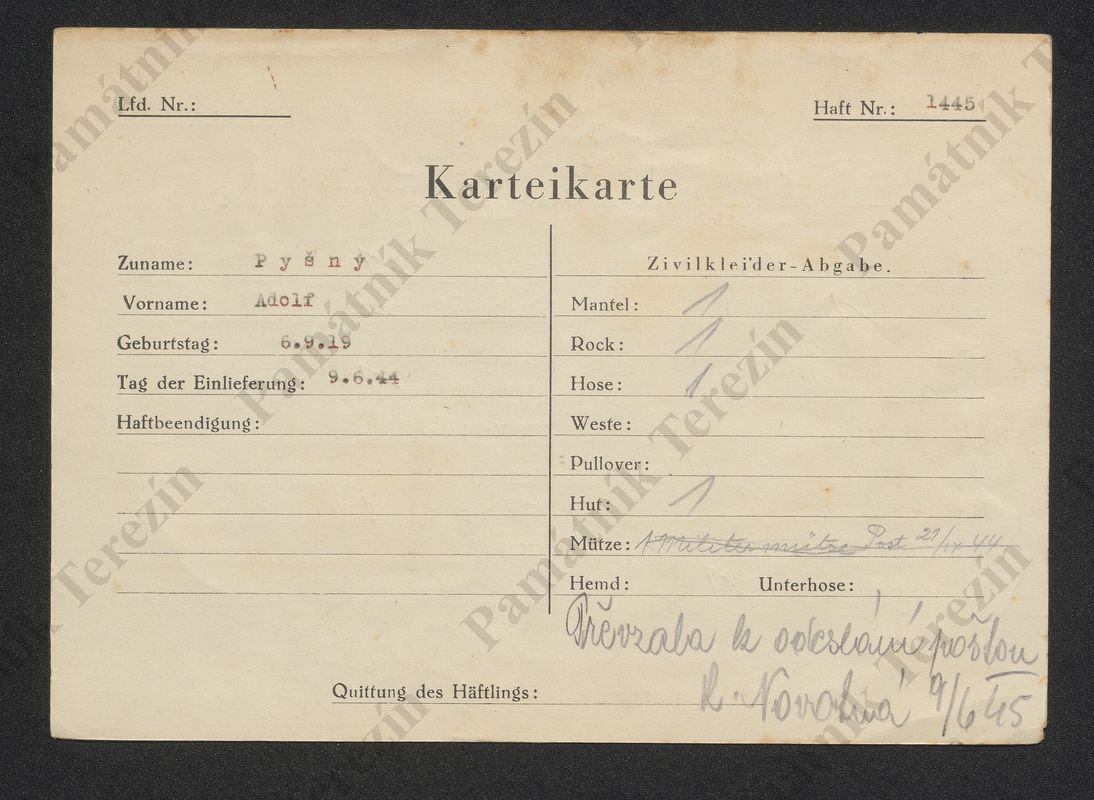 Lfd. Nr.:
Haft Nr.: 1445
Karteikarte
Zuname: Pyšný
Vorname: Adolf
Geburtstag: 6.9.19
Tag der Einlieferung: 9.6.44
Haftbeendigung:
Zivilkleider-Abgabe.
Mantel: 1
Rock: 1
Hose: 1
Weste:
Pullover:
Hut: 1
Mütze: 1 Militermütze Post 21/IX 44
Hemd: Unterhose:
Převzala k odeslání poštou
Novotná 9/6 45
Quittung des Häftlings:
Památník Terezín
Památník Terezín
Památník Terezín
Památník Terezín